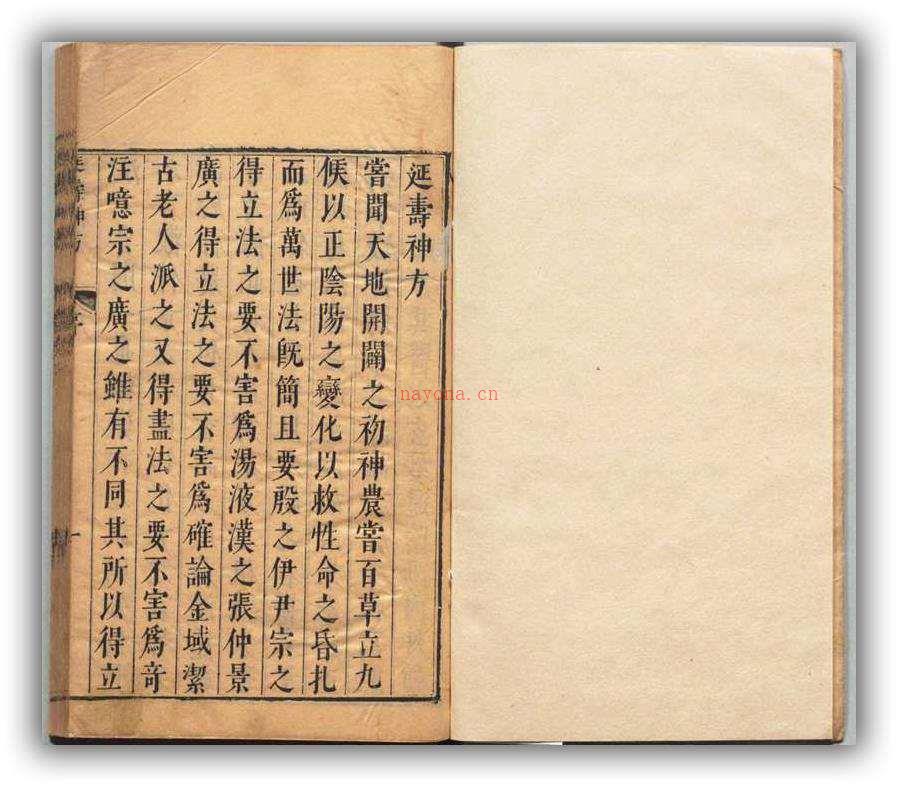 延壽神方
嘗聞天地開闢之初神農嘗百草立九
候以正陰陽之變化以救性命之昏扎
而爲萬世法旣簡且要殷之伊尹宗之
得立法之要不害爲湯液漢之張仲景
廣之得立法之要不害爲確論金域潔
古老人派之又得盡法之要不害爲竒
注噫宗之廣之雖有不同其所以得立
壽神方
nayona.cn